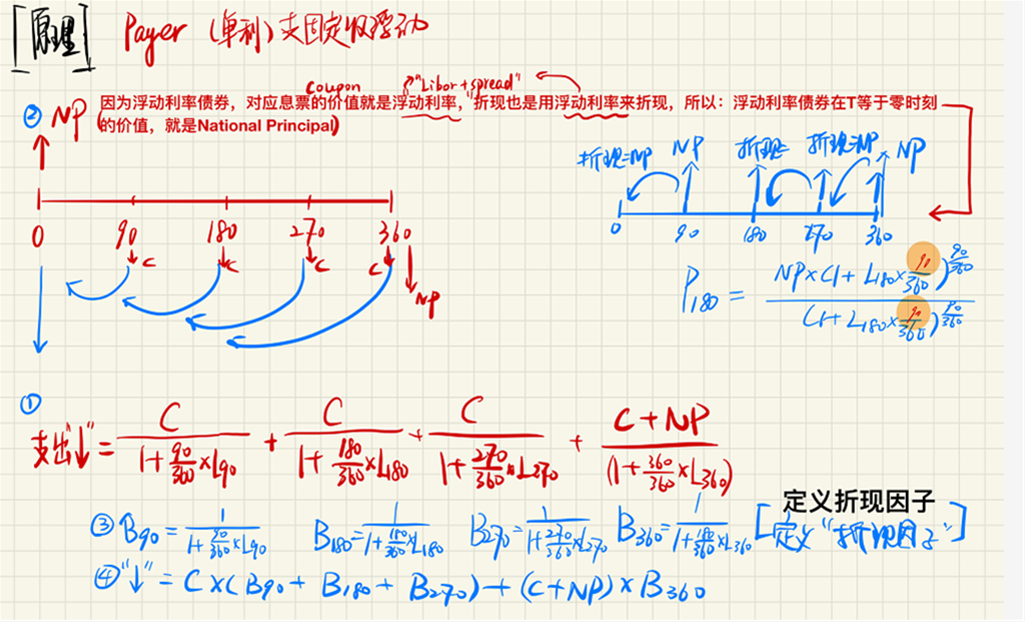 [原理] Payer (单利) 支固定收浮动
coupon "Libor+spread"
② NP (因为浮动利率债券，对应息票的价值就是浮动利率，折现也是用浮动利率来折现，所以：浮动利率债券在T等于零时刻
的价值，就是National Principal)
折现=NP NP 折现= 折现=NP NP
0 90 180 270 360
0 90 180 270 360
C C C C
NP
P180 = NP×(1+L180×90/360)^90/360 / (1+L180×90/360)^90/360
①
支出"↓" = C/(1+90/360×L90) + C/(1+180/360×L180) + C/(1+270/360×L270) + (C+NP)/(1+360/360×L360)
定义折现因子
③ B90 = 1/(1+90/360×L90) B180 = 1/(1+180/360×L180) B270 = 1/(1+270/360×L270) B360 = 1/(1+180/360×L360) [定义"折现因子"]
④ "↓" = C×(B90+B180+B270)+(C+NP)×B360